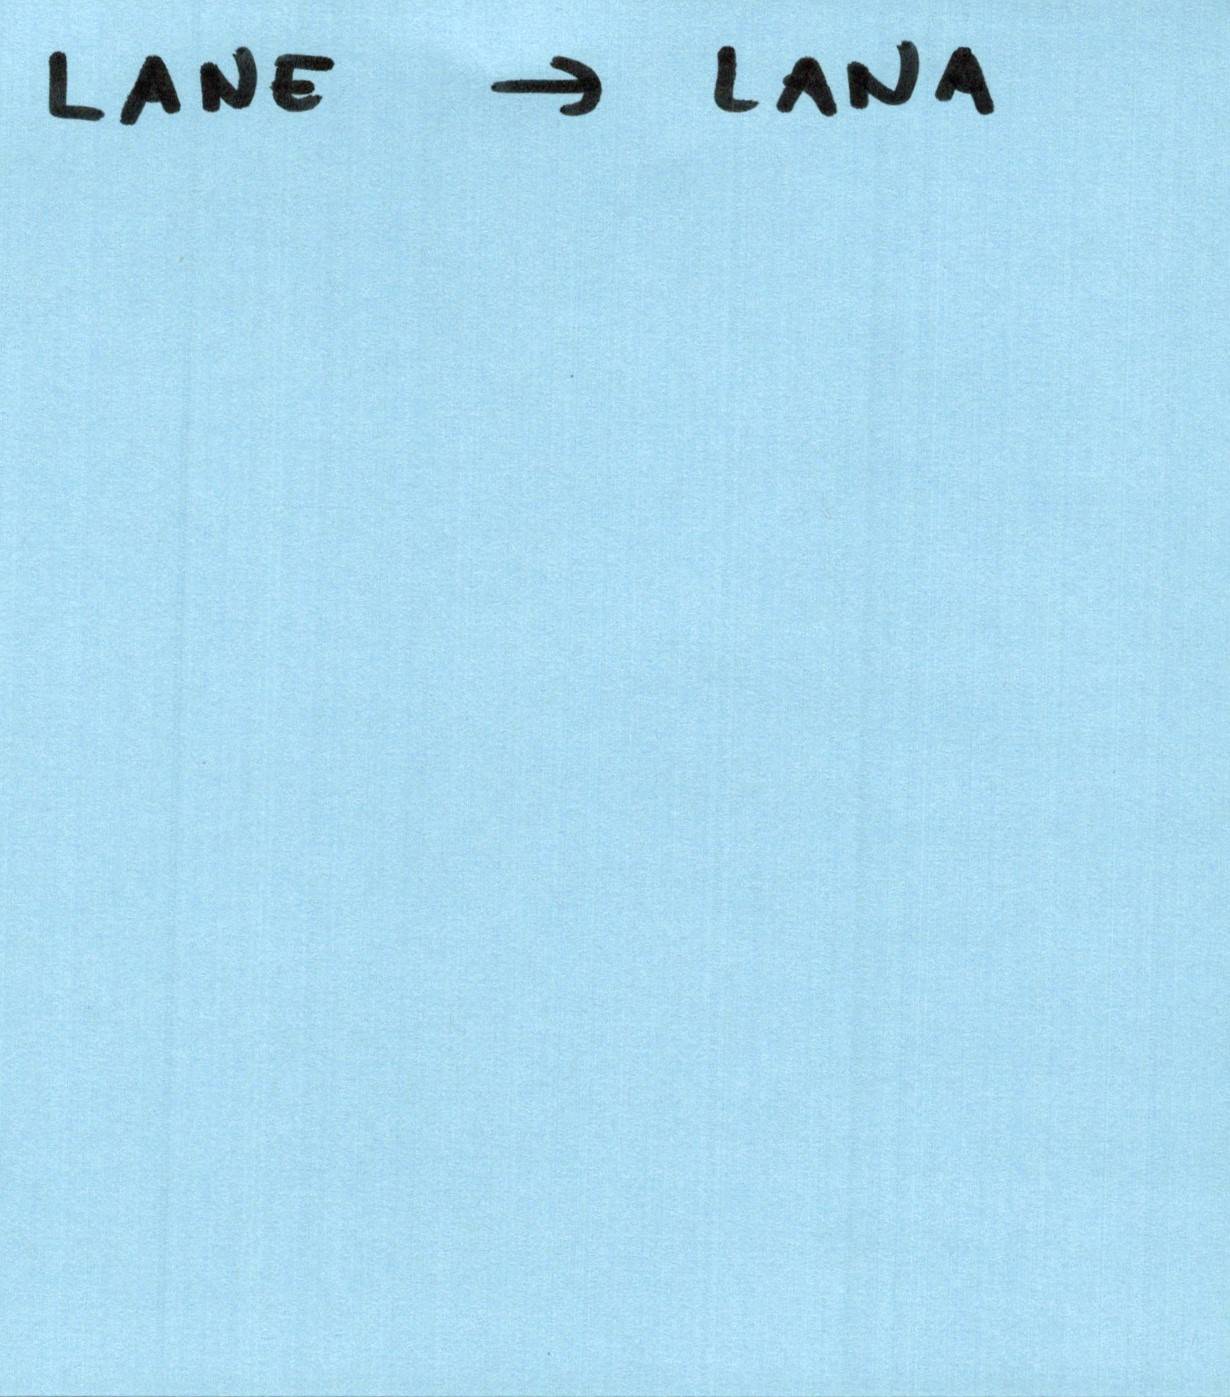 LANE → LANA